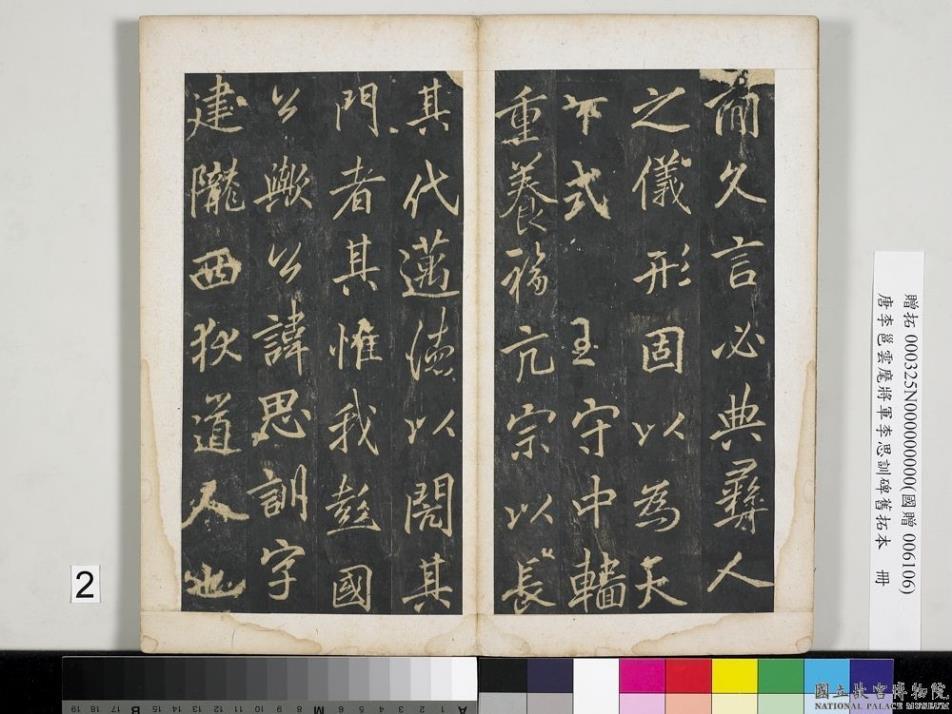 簡久言必典彝人
之儀形固以為天
下式玉守中轄
重養福亢宗以長
其代邁德以閎其
門者其惟我彭國
公歟公諱思訓字
建隴西狄道人也
贈拓 000325N000000000(國贈 006106)
唐李邕雲麾將軍李思訓碑舊拓本 冊
2
國立故宮博物院
NATIONAL PALACE MUSEUM